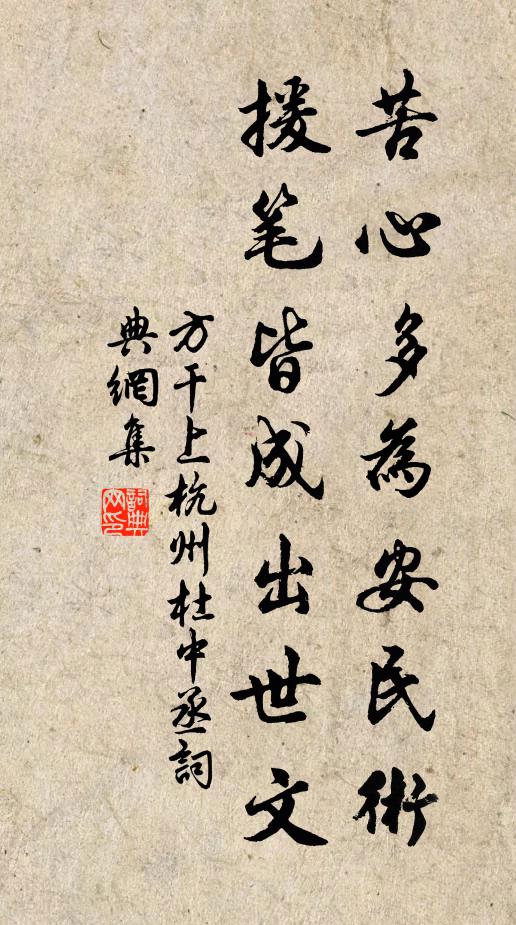 苦心多為安民術
援笔皆成出世文
方干上杭州杜中丞詞
典網集
詞典网印